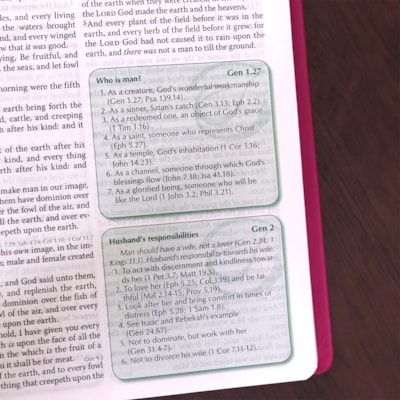 and every living
the waters brought
and every winged
w that it was good.
ying, Be fruitful, and
the seas, and let fowl
morning were the fifth
earth bring forth the
d, cattle, and creeping
th after his kind: and it
of the earth after his
kind, and every thing
earth after his kind: and
make man in our image,
them have dominion over
r the fowl of the air, and
ll the earth, and over ev-
epeth upon the earth.
his own image, in the im-
; male and female created
, and God said unto them,
and replenish the earth,
dominion over the fish of
l of the air, and over every
upon the earth.
hold, I have given you every
h is upon the face of all the
n the which is the fruit of a
u it shall be for meat.
of the earth, and to every fowl
thing that creepeth upon the
of the earth when they were created,
the LORD God made the earth and the heavens,
5And every plant of the field before it was in the
earth, and every herb of the field before it grew: for
the LORD God had not caused it to rain upon the
earth, and there was not a man to till the ground.
Who is man? Gen 1.27
1. As a creature, God's wonderful workmanship
(Gen 1.27; Psa 139.14).
2. As a sinner, Satan's catch (Gen 3.13; Eph 2.2).
3. As a redeemed one, an object of God's grace
(1 Tim 1.16).
4. As a saint, someone who represents Christ
(Eph 5.27).
5. As a temple, God's inhabitation (1 Cor 3.16;
John 14.23).
6. As a channel, someone through which God's
blessings flow (John 7.38; Isa 41.18).
7. As a glorified being, someone who will be
like the Lord (1 John 3.2; Phil 3.21).
Husband's responsibilities Gen 2
Man should have a wife, not a lover (Gen 2.24; 1
King 11.1). Husband's responsibility towards his wife:
1. To act with discernment and kindness towar-
ds her (1 Pet 3.7; Matt 19.5).
2. To love her (Eph 5.25; Col 3.19) and be fai-
thful (Mal 2.14-15; Prov 5.19).
3. Look after her and bring comfort in times of
distress (Eph 5.28; 1 Sam 1.8).
4. See Isaac and Rebekah's example
(Gen 24.67).
5. Not to dominate, but work with her
(Gen 31.4-7).
6. Not to divorce his wife (1 Cor 7.11-12).